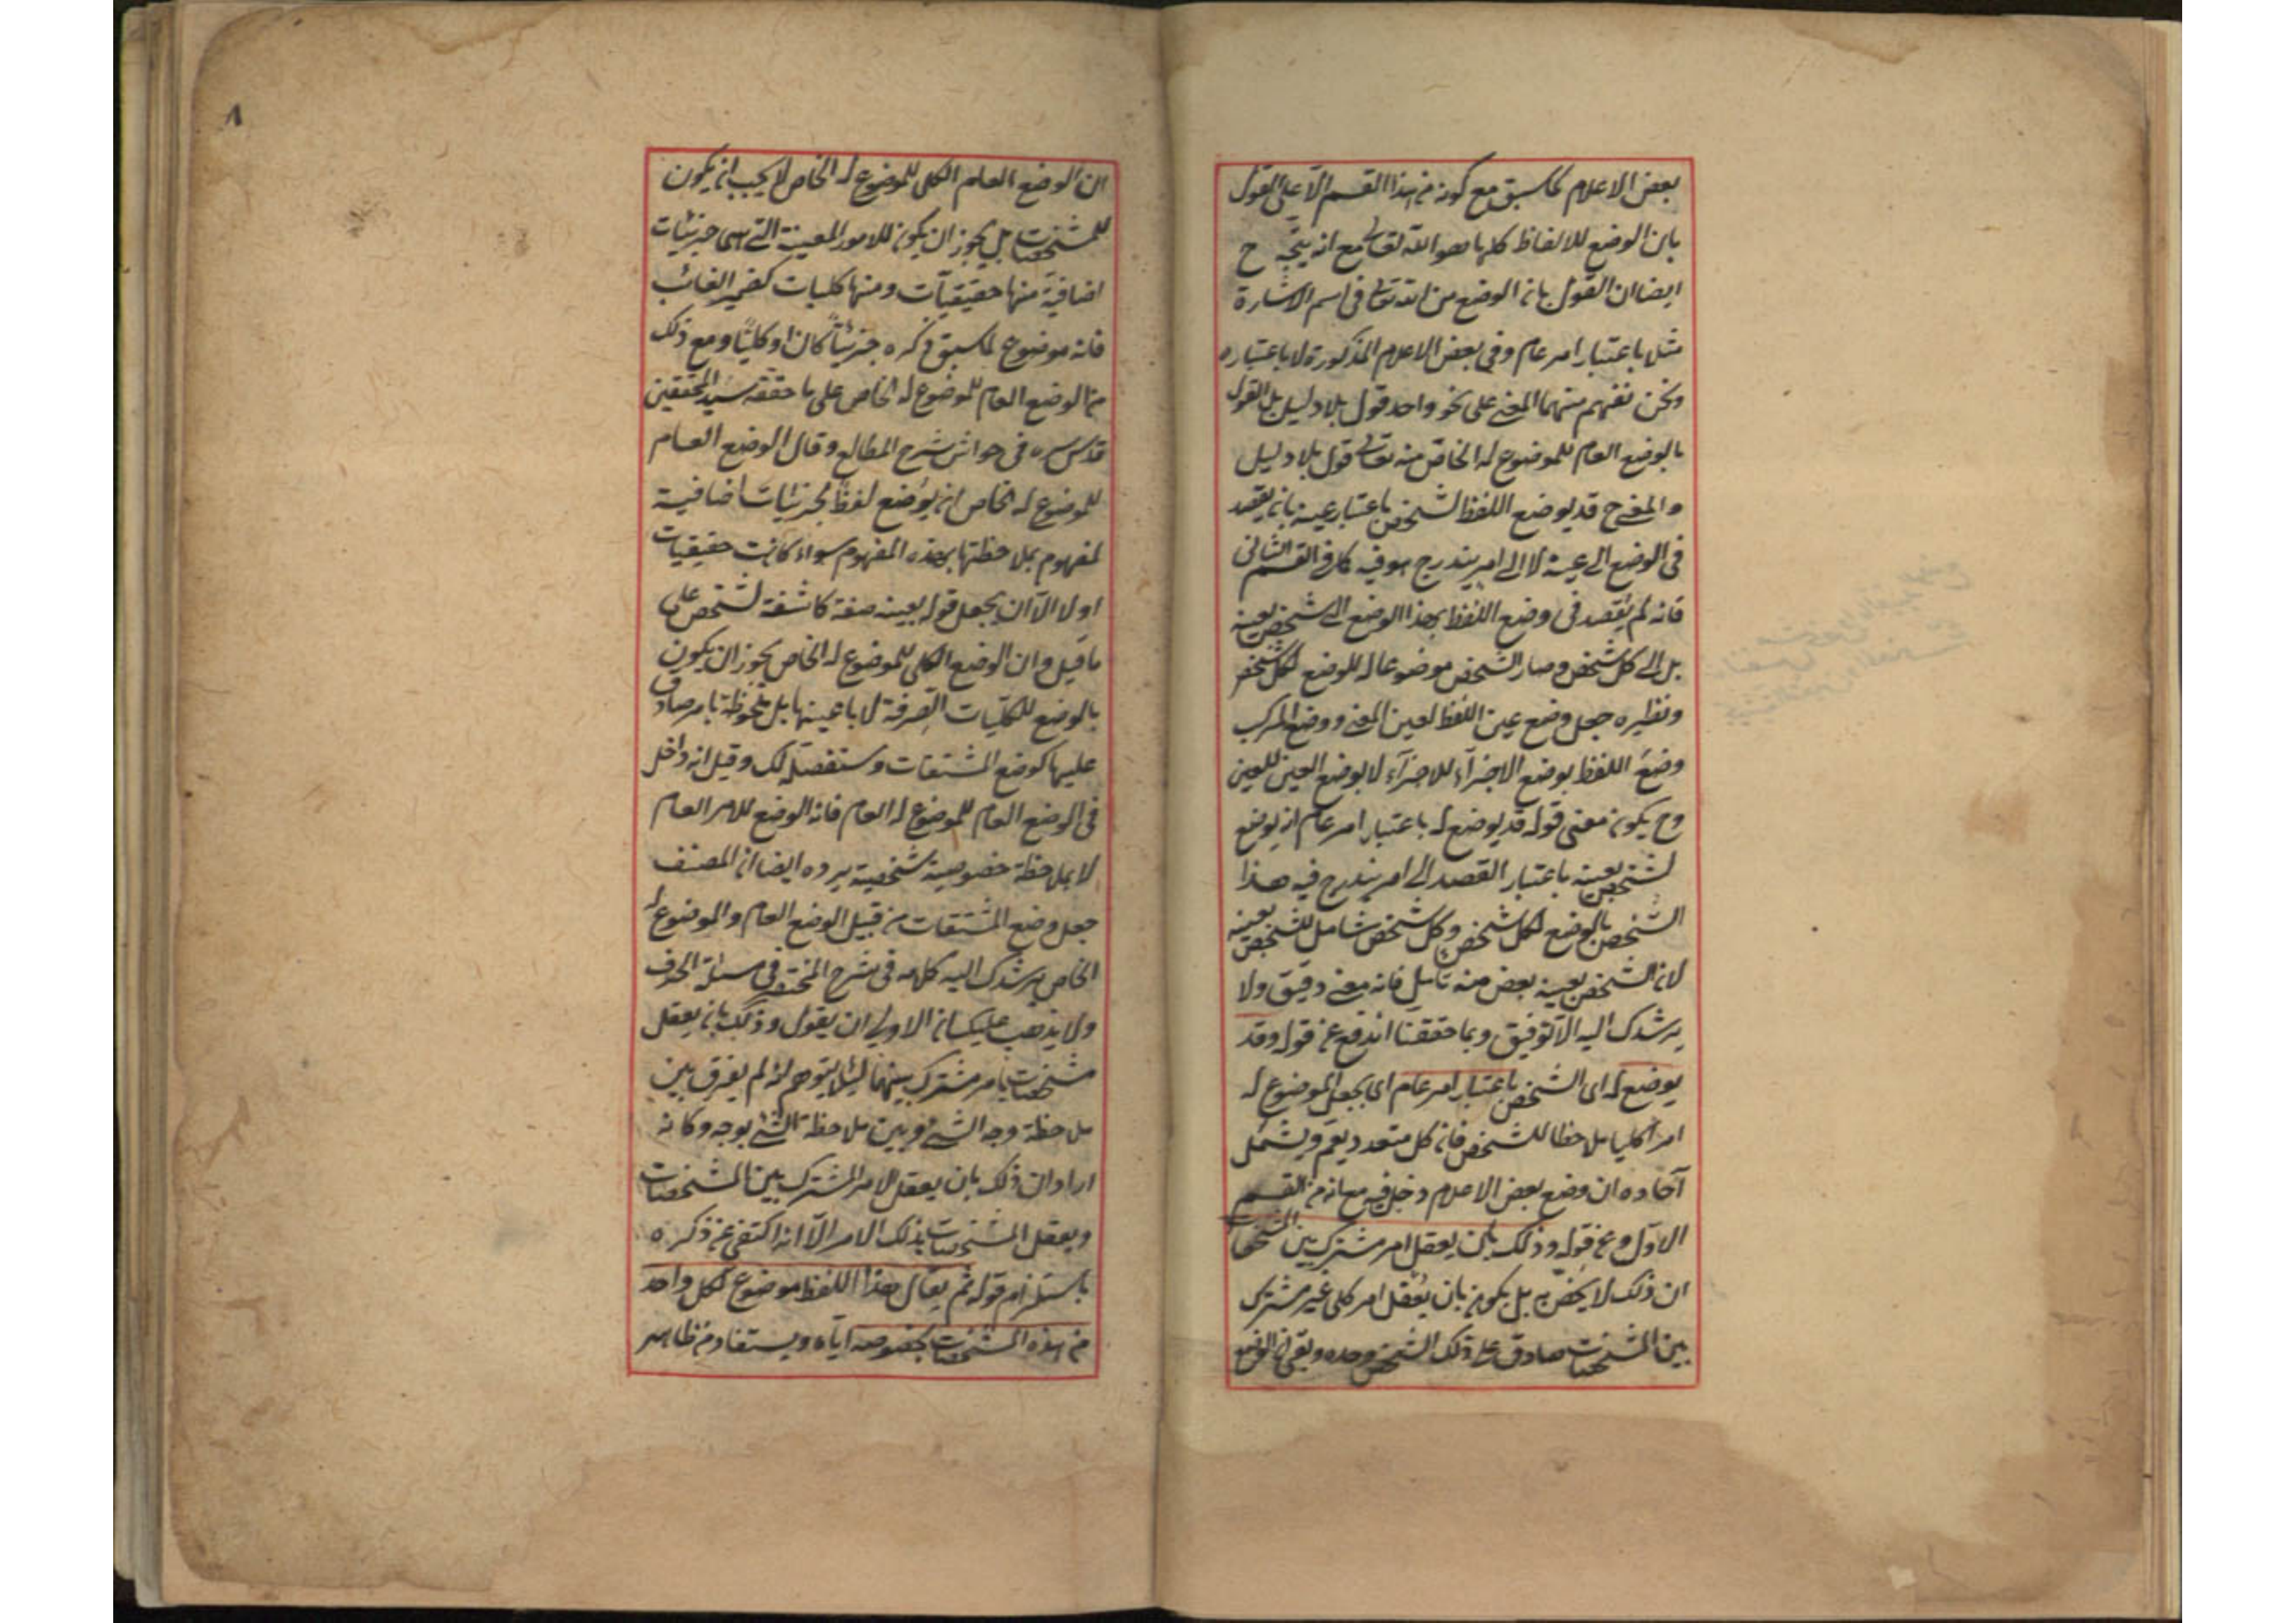 بعض الاعلام كما سبق مع كونه من هذا القسم الا على القول
بان الوضع للالفاظ كلها هو الله تعالى مع انه يتجه ح
ايضا ان القول بان الوضع من الله تعالى فى اسم الاشارة
مثلا باعتبار امر عام وفى بعض الاعلام المذكورة لا باعتباره
ونحن نفهم منهما المعنى على نحو واحد قول بلا دليل بل القول
بالوضع العام للموضوع له الخاص منه تعالى قول بلا دليل
والمعنى ح قد يوضع اللفظ لشخص باعتبار عينه بان يقصد
فى الوضع الى عينه لا الى امر يندرج هو فيه كما فى القسم الثانى
فانه لم يقصد فى وضع اللفظ بهذا الوضع الى شخص بعينه
بل الى كل شخص وصار الشخص موضوعا له للوضع لكل شخص
ونظيره جعل وضع عين اللفظ لعين المعنى ووضع المركب
وضع اللفظ بوضع الاجزآء للاجزآء لا بوضع العين للعين
وح يكون معنى قوله قد يوضع له باعتبار امر عام انه يوضع
لشخص بعينه باعتبار القصد الى امر يندرج فيه هذا
الشخص بالوضع لكل شخص وكل شخص شامل للشخص بعينه
لان الشخص بعينه بعض منه تامل فانه معنى دقيق ولا
يرشدك اليه الا التوفيق وبما حققنا اندفع عن قوله وقد
يوضع له اى الشخص باعتبار امر عام اى بجعل الموضوع له
امرا كليا ملاحظا للشخص فان كل متعدد يعم ويشمل
آحاده ان وضع بعض الاعلام دخل فيه مع انه من القسم
الاول وعن قوله وذلك بان يعقل امر مشترك بين المشخصات
ان ذلك لا يخص به بل يكون بان يعقل امر كلى غير مشترك
بين المشخصات صادق على ذلك الشخص وحده وبقى ان الوضع
٨
ان الوضع العام الكلى للموضوع له الخاص لا يجب ان يكون
للمشخصات بل يجوز ان يكون للامور المعينة التى هى جزئيات
اضافية منها حقيقيات ومنها كليات كضمير الغائب
فانه موضوع لما سبق ذكره جزئيا كان او كليا ومع ذلك
من الوضع العام للموضوع له الخاص على ما حققه سيد المحققين
قدس سره فى حواشى شرح المطالع وقال الوضع العام
للموضوع له الخاص ان يوضع لفظ لجزئيات اضافية
لمفهوم بملاحظتها بهذه المفهوم سواء كانت حقيقيات
او لا الا ان يجعل قوله بعينه صفة كاشفة لشخص على
ما قيل وان الوضع الكلى للموضوع له الخاص يجوز ان يكون
بالوضع للكليات الصرفة لا باعيانها بل ملحوظة بامر صادق
عليها كوضع المشتقات وستفصله لك وقيل انه داخل
فى الوضع العام للموضوع له العام فانه الوضع للامر العام
لا بملاحظة خصوصية شخصية يرده ايضا ان المصنف
جعل وضع المشتقات من قبيل الوضع العام والموضوع له
الخاص يرشدك اليه كلامه فى شرح المختصر فى مسئلة الحرف
ولا يذهب عليك ان الاولى ان يقول وذلك بان يعقل
مشخصات بامر مشترك بينهما لئلا يتوهم انه لم يفرق بين
ملاحظة وجه الشئ وبين ملاحظة الشئ بوجه وكانه
اراد ان ذلك بان يعقل الامر المشترك بين المشخصات
ويعقل المشخصات بذلك الامر الا انه اكتفى عن ذكره
باستلزام قوله ثم يقال هذا اللفظ موضوع لكل واحد
من هذه المشخصات بخصوصه اياه ويستفاد من ظاهر